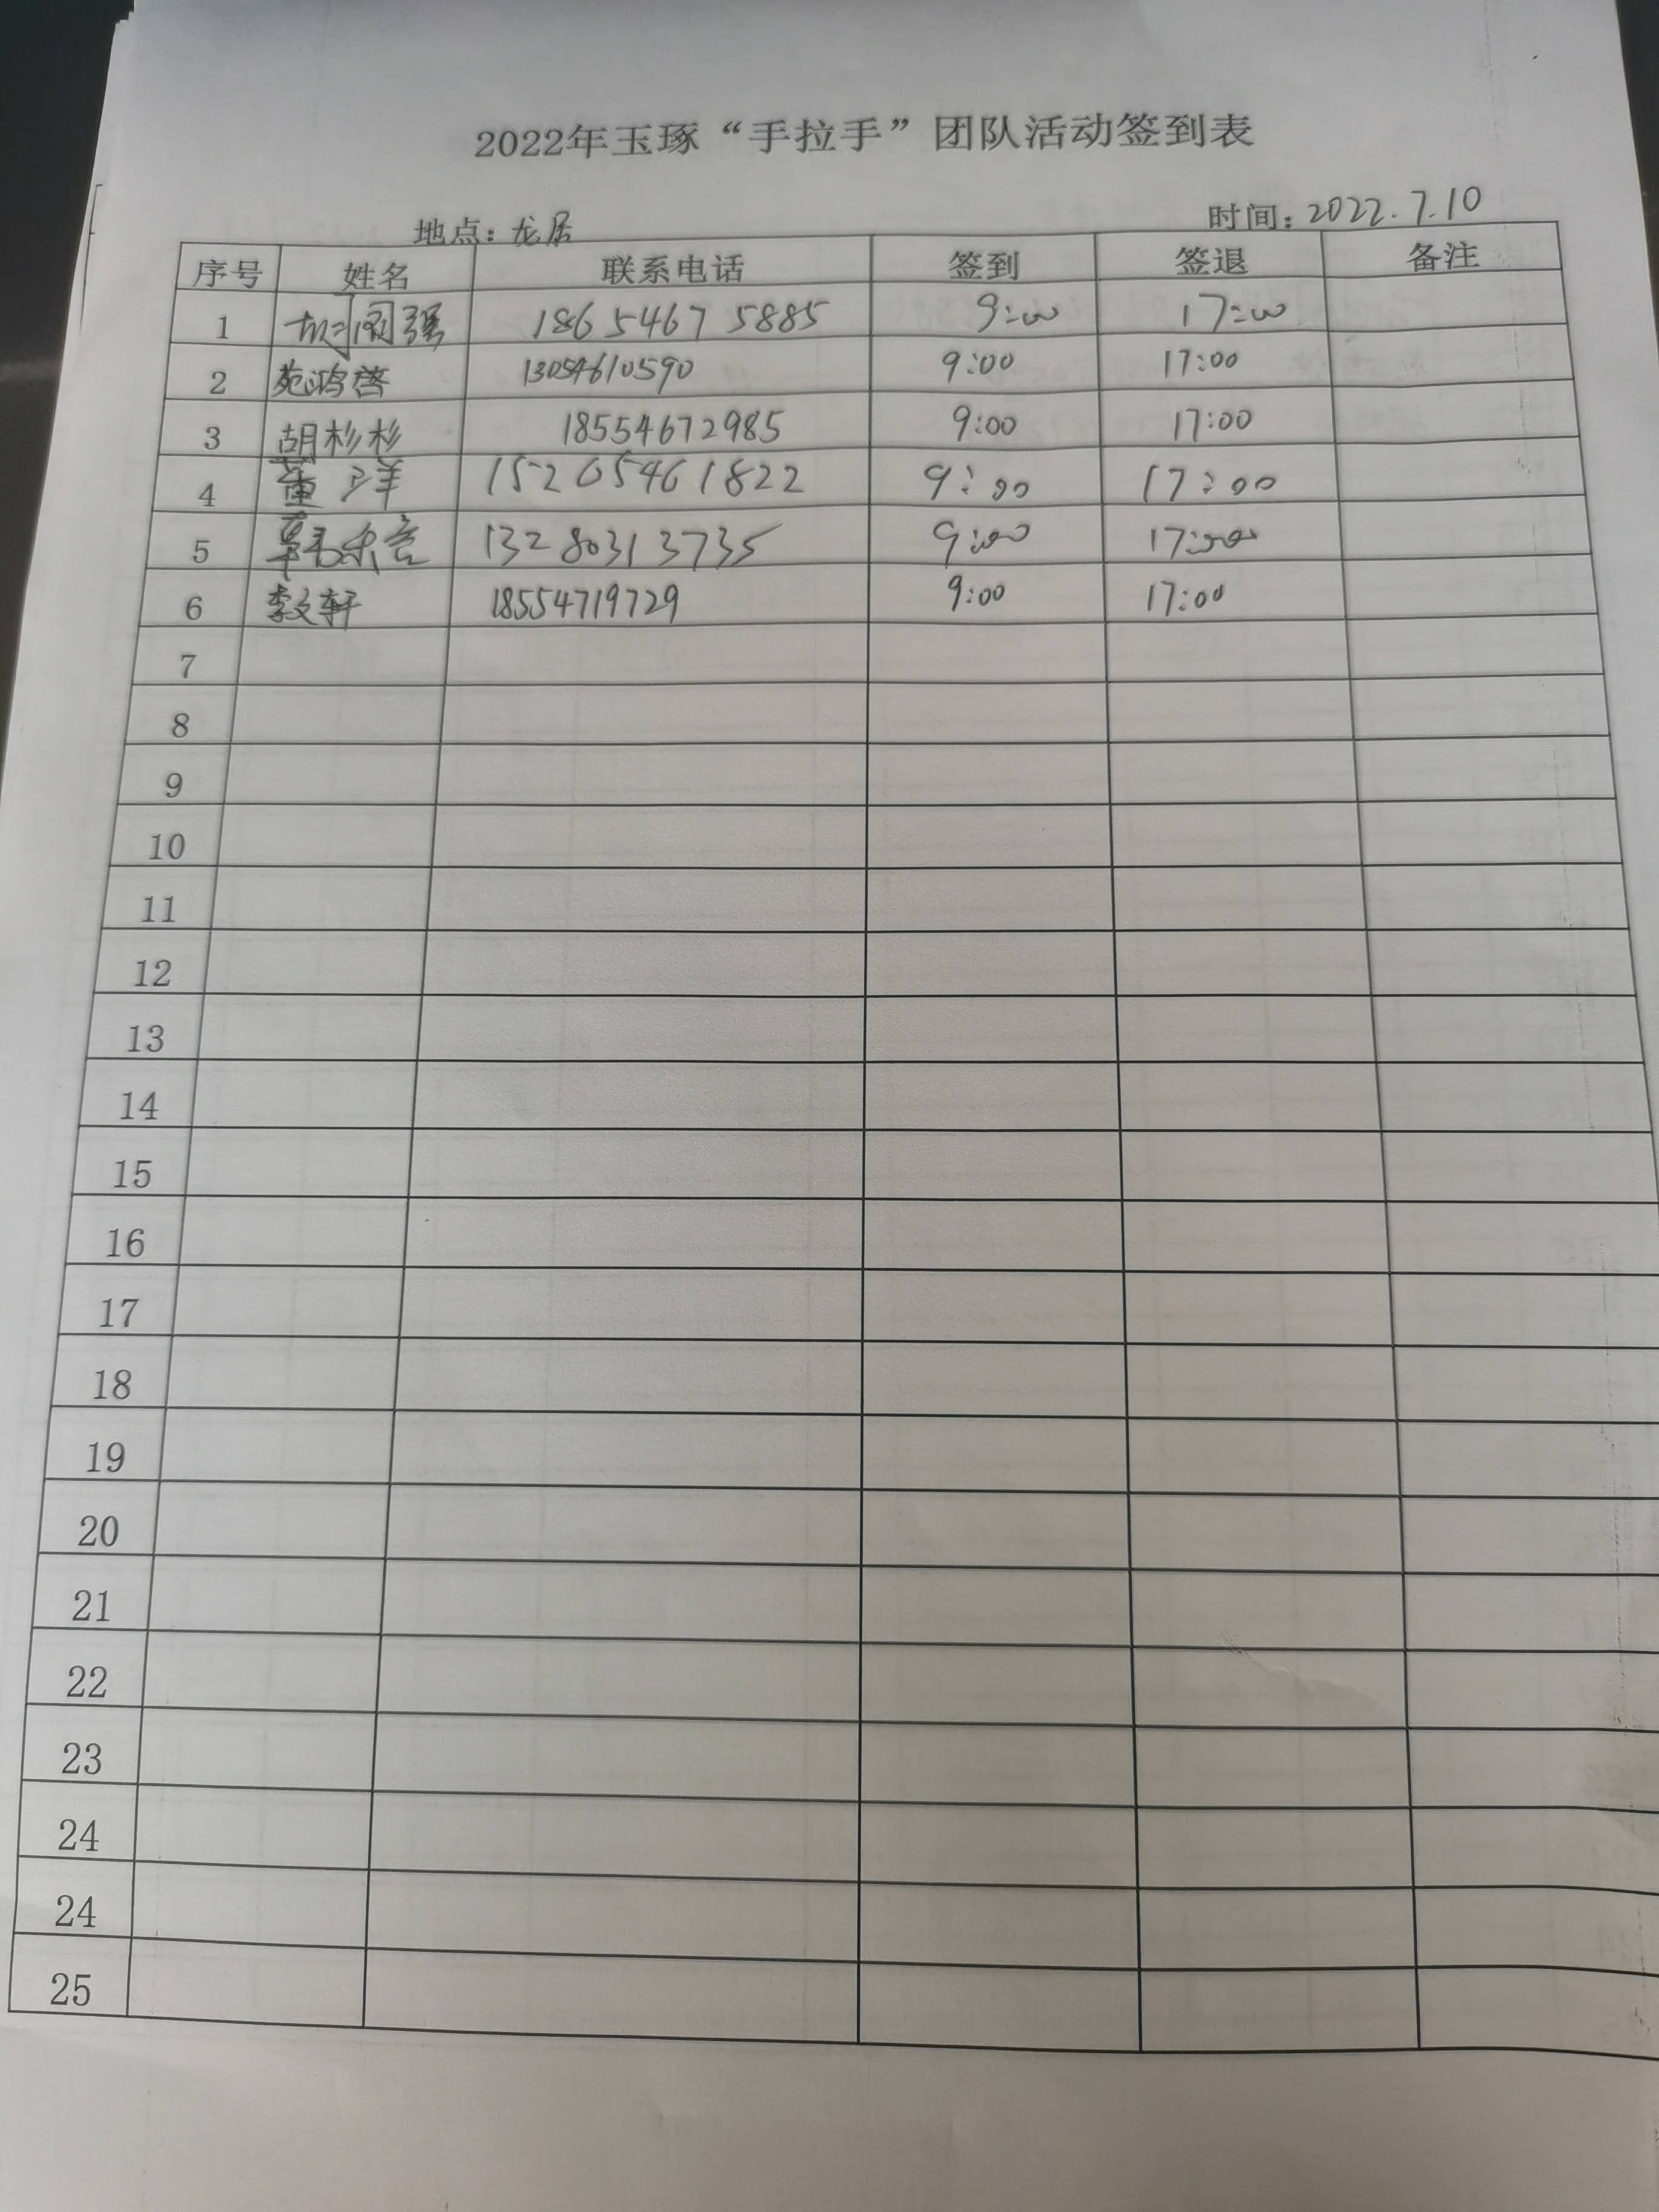 2022年玉琢“手拉手”团队活动签到表
地点：龙居 时间：2022.7.10
序号 姓名 联系电话 签到 签退 备注
1 胡国强 18654675885 9:00 17:00
2 苑鸿啓 13054610590 9:00 17:00
3 胡杉杉 18554672985 9:00 17:00
4 董洋 15205461822 9:00 17:00
5 13280313735 9:00 17:00
6 李文轩 18554719729 9:00 17:00
7
8
9
10
11
12
13
14
15
16
17
18
19
20
21
22
23
24
24
25